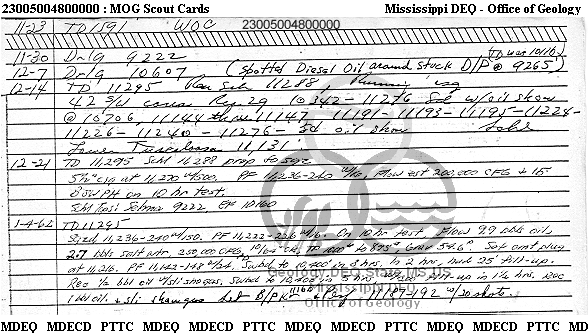 23005004800000 : MOG Scout Cards Mississippi DEQ - Office of Geology
11-23 TD 1591' WOC 23005004800000
11-30 Drlg 9222 (TD was 10116)
12-7 Drlg 10607 (Spotted Diesel Oil around stuck D/P @ 9265')
12-14 TD 11295 Ran Sch 11288, Running csg
42 S/W cores Rep. 29 10342-11276 Sd w/oil show
@ 10706, 11144 11147-11191-11193-11195-11224-
11226-11240-11276- Sd oil show
Lower Tuscaloosa 11,131'
12-21 TD 11,295 Schl 11,288 prep to sqze
5½" csg at 11,290 w/500, PF 11,236-240 w/16, Flow est 200,000 CFG + 15
BSWPH on 10 hr test.
Schl 9222, EF 10160
1-4-62 TD 11295
Sqzd 11,236-240 w/150. PF 11,222-226 w/16. On 10 hr test, Flow 9.9 bbls oil,
2.7 bbls salt wtr, 250,000 CFG, 10/64" ck, TP 100# to 875# Grav 54.6° Set cmt plug
at 11,216. PF 11,142-148 w/24. Swbd to 10,400 in 3 hrs, in 2 hrs, had 25' fill-up.
Rec ½ bbl oil w/sli showgas. Swbd to 10,400 in 5 hrs, fill-up in 1½ hrs. Rec
1 bbl oil + sli show gas Set B/Pkr 11160 + Perf 11187-192 w/20 shots.
Geology.DEQ.State.MS.US
Mississippi
Office of Geology
MDEQ MDECD PTTC MDEQ MDECD PTTC MDEQ MDECD PTTC MDEQ MDECD PTTC MDI